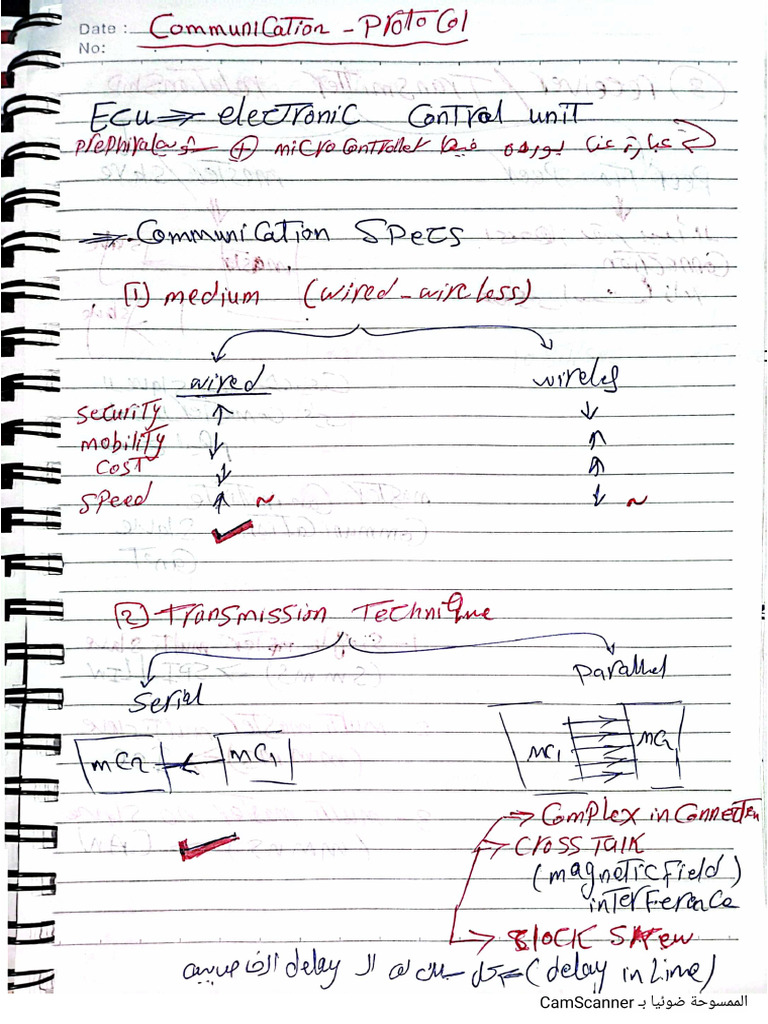 Date : Communication - Protocol
No:
ECU => electronic Control unit
عبارة عن بورده فيها microcontroller + prephirals
=> Communication Specs
[1] medium (wired - wireless)
wired wireless
Security ↑ ↓
mobility ↓ ↑
Cost ↓ ↑
Speed ↑ ~ ↓ ~
[2] Transmission Technique
Serial Parallel
mC2 ← mC1 mC1 mC2
→ Complex in Connection
→ Cross Talk
(magnetic field)
interference
→ Block Skew
(delay in Line) => كل سلك له ال delay الخاص بيه
الممسوحة ضوئيا بـ CamScanner